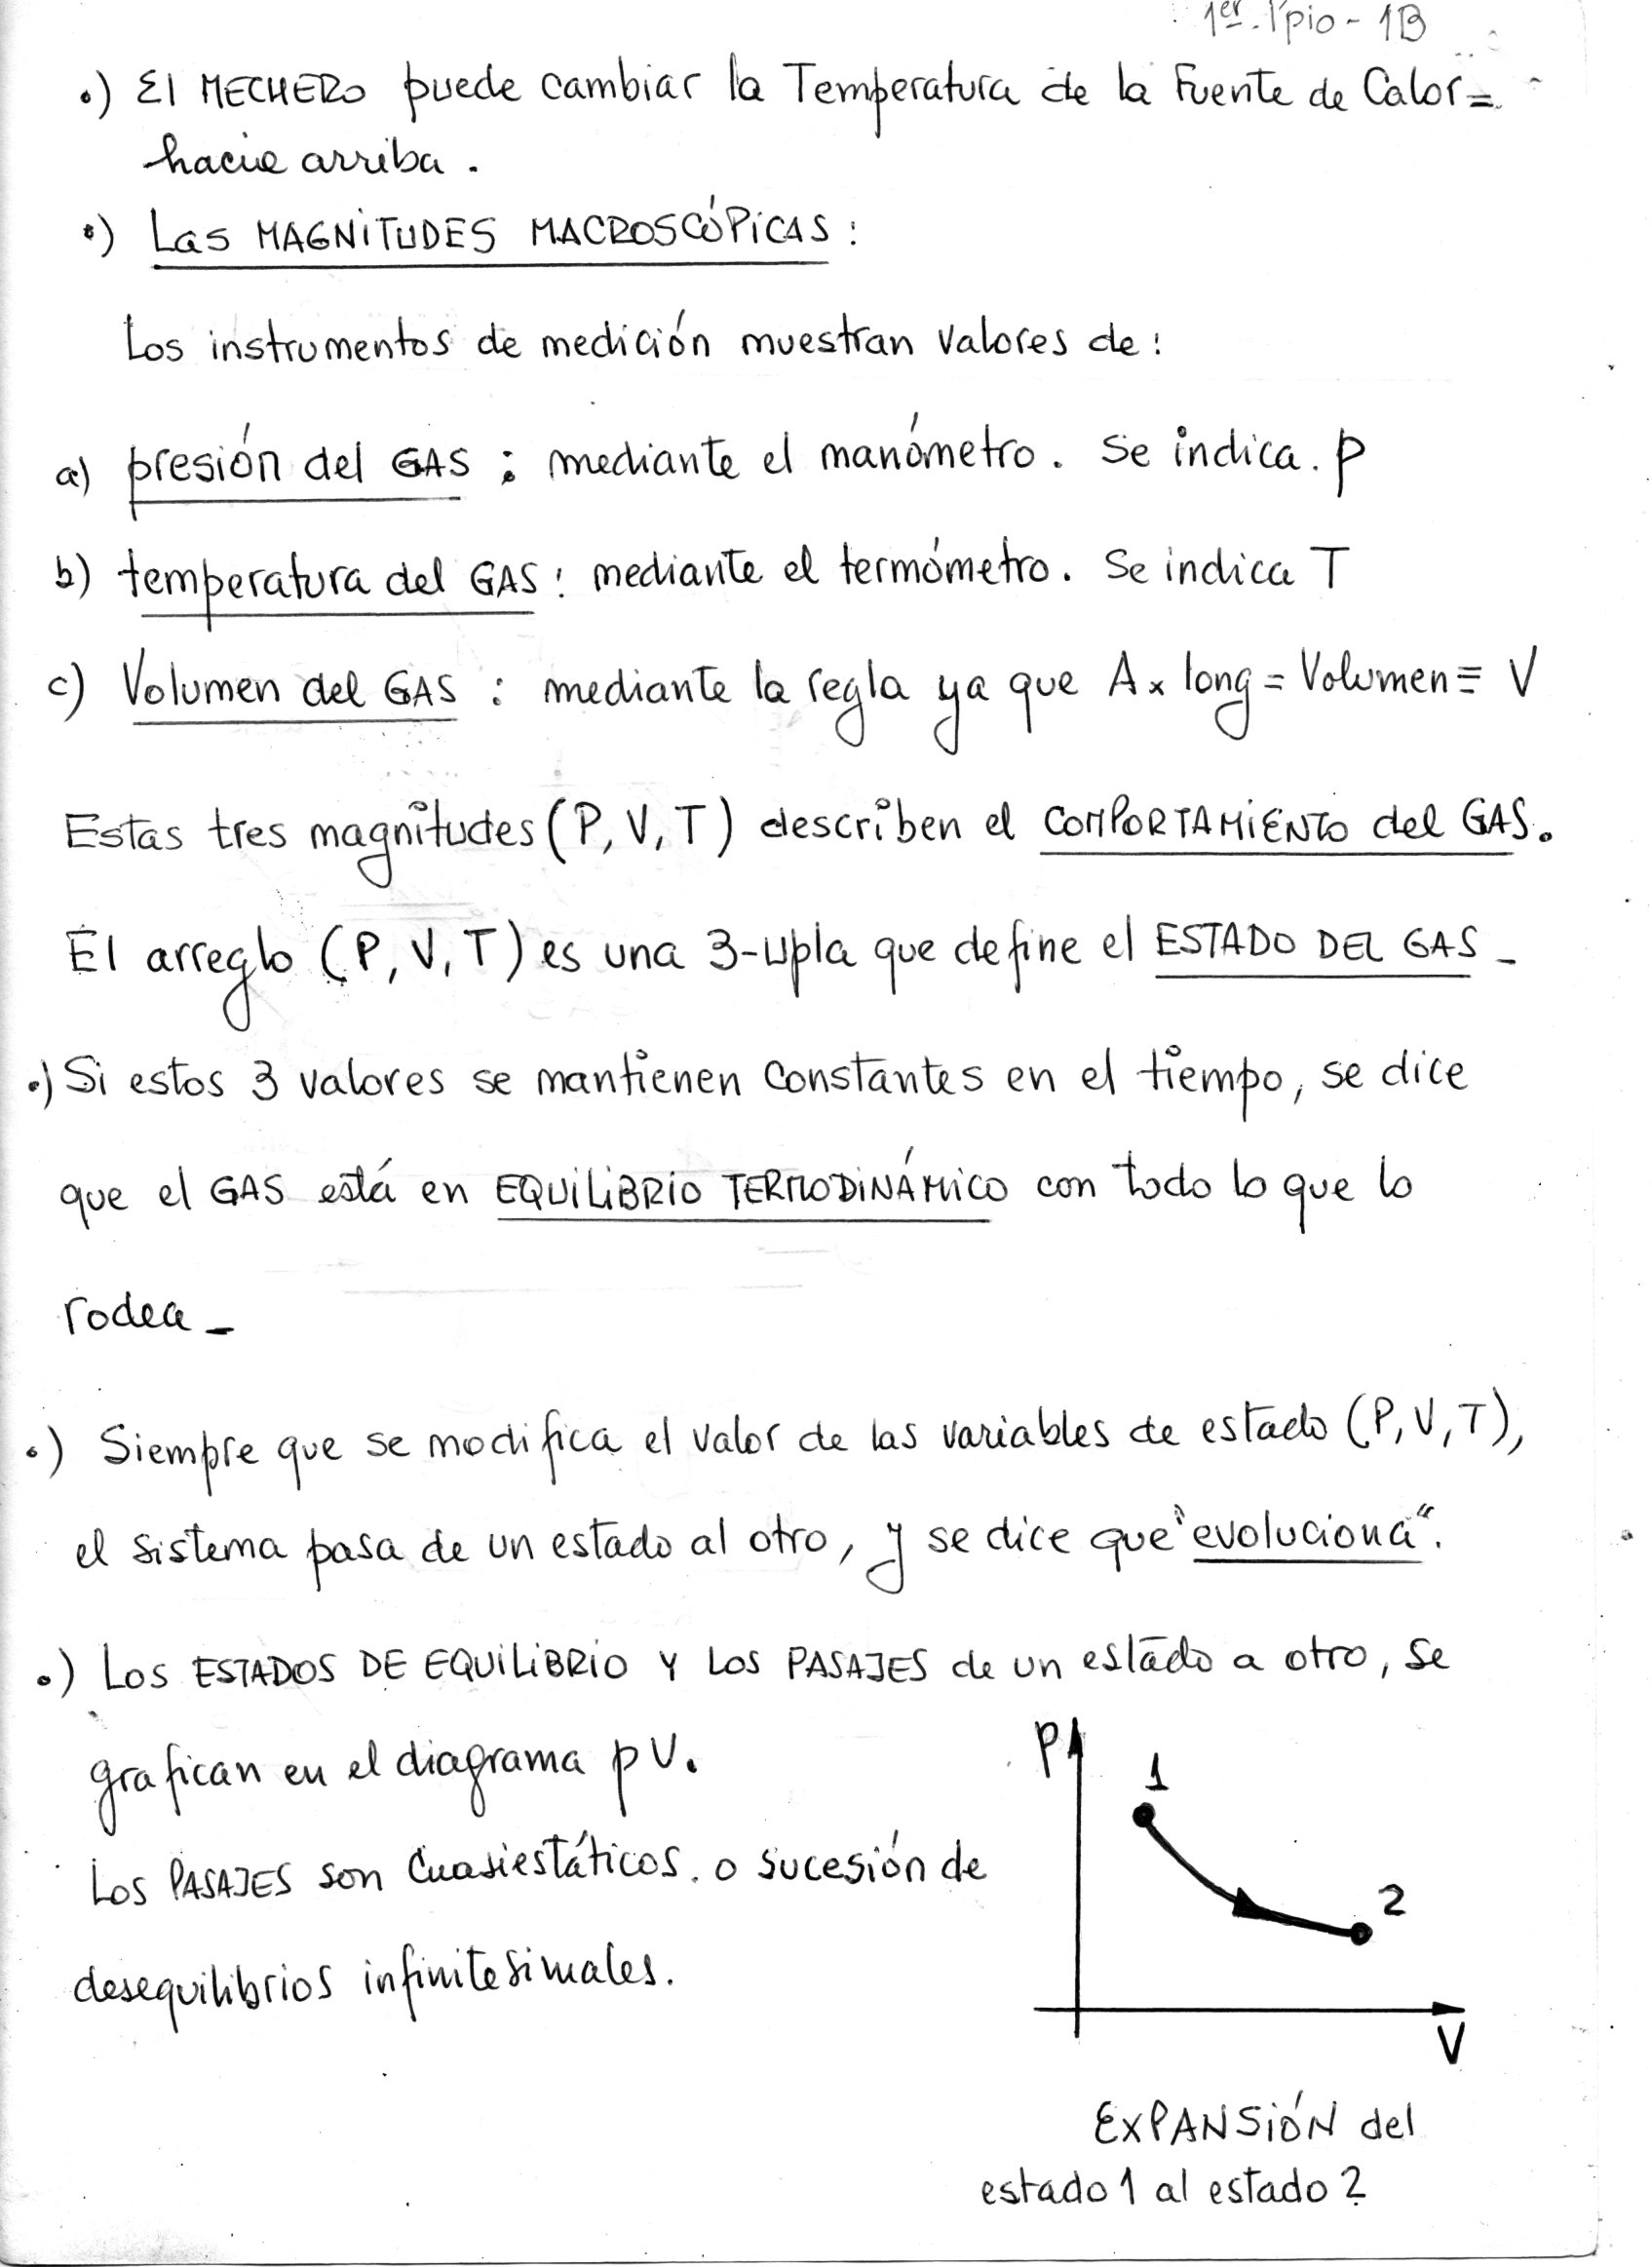 1er. Ppio - 1B
•) El MECHERO puede cambiar la Temperatura de la Fuente de Calor =
hacia arriba.
•) Las MAGNITUDES MACROSCÓPICAS:
Los instrumentos de medición muestran valores de:
a) presión del GAS: mediante el manómetro. Se indica. p
b) temperatura del GAS: mediante el termómetro. Se indica T
c) Volumen del GAS: mediante la regla ya que A x long = Volumen ≡ V
Estas tres magnitudes (P, V, T) describen el COMPORTAMIENTO del GAS.
El arreglo (P, V, T) es una 3-upla que define el ESTADO DEL GAS -
•) Si estos 3 valores se mantienen constantes en el tiempo, se dice
que el GAS está en EQUILIBRIO TERMODINÁMICO con todo lo que lo
rodea -
•) Siempre que se modifica el valor de las variables de estado (P, V, T),
el sistema pasa de un estado al otro, y se dice que "evoluciona".
•) Los ESTADOS DE EQUILIBRIO Y LOS PASAJES de un estado a otro, se
grafican en el diagrama pV.
Los PASAJES son Cuasiestáticos. o sucesión de
desequilibrios infinitesimales.
P
1
2
V
EXPANSIÓN del
estado 1 al estado 2